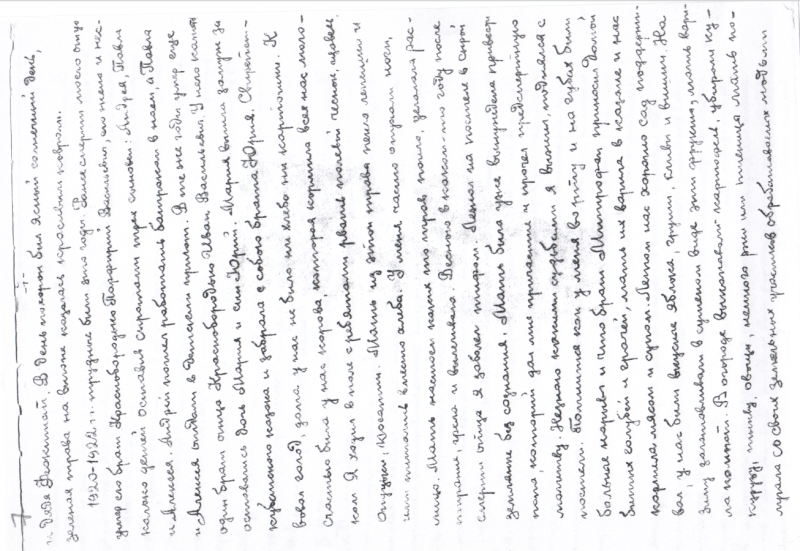 и дядя Никитий. В день похорон был ясный солнечный день,
зеленая трава на выгоне казалась красивым ковром.
1920-1922 г.г. трудные были это годы. После смерти моего отца
умер его брат Краснобородько Порфирий Васильевич, его жена и нес-
колько детей оставив сиротами трех сыновей: Андрея, Павла
и Алексея. Андрей пошел работать батраком в наем, а Павла
и Алексея отдали в детский приют. В те же годы умер еще
один брат отца Краснобородько Иван Васильевич. У него
остались дочь Мария и сын Юрий. Мария вышла замуж за
кубанского казака и забрала с собой брата Юрия. Свирепст-
вовал голод, дома у нас не было ни хлеба ни картошки. К
счастью была у нас корова, которая кормила всех нас моло-
ком. Я ходил в поле с ребятами рвать полевой чеснок, щавель,
Мать из этой травы пекла лепешки и
ими питались вместо хлеба. У меня часто опухали ноги,
лицо. Мать настоем какой то травы поила, делала рас-
тирание, грела и вылечила. Однако в каком-то году после
смерти отца я заболел тифом. Лежал на постели в сырой
землянке без сознания. Мать была уже вынуждена привести
попа, который дал мне причастие и прочел предсмертную
молитву. Незнаю какими судьбами я выжил, поднялся с
постели. Помнится как у меня во рту и на губах были
большие нарывы и что брат Митрофан приносил домой
битых голубей и грачей, мать их варила в казане и нас
кормила мясом и супом. Летом нас хорошо сад поддержи-
вал, у нас были вкусные яблоки, груши, сливы и вишни. На
зиму заготавливали в сушеном виде эти фрукты, мать вари-
ла компот. В огороде выкапывали картофель, убирали ку-
курузу, тыкву, овощи, немного ржи или пшеницы мать по-
лучала со своих земельных участков обрабатываемых людьми